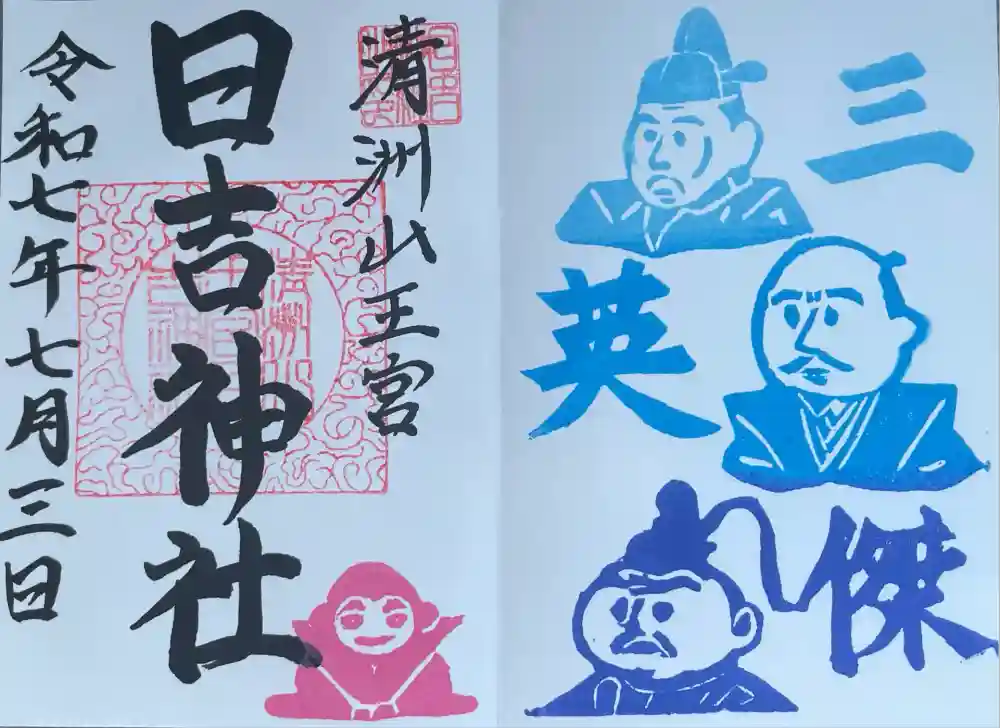 三
英
傑
清洲山王宮
日吉神社
令和七年七月三日